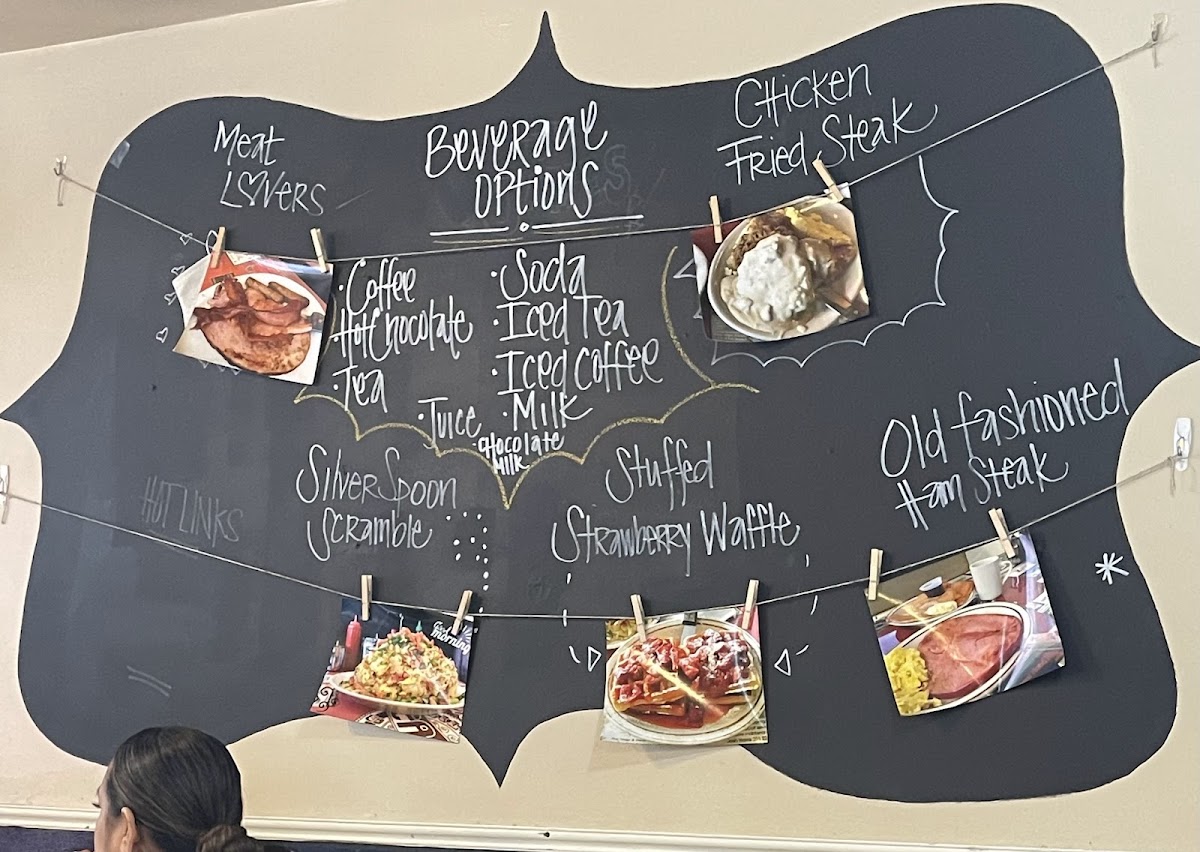 Meat
LOVERS
Beverage
Options
Chicken
Fried Steak
· Coffee
· Hot Chocolate
· Tea
· Juice
· Soda
· Iced Tea
· Iced Coffee
· Milk
· Chocolate
Milk
HOT LINKS
Silver Spoon
Scramble
Stuffed
Strawberry Waffle
Old fashioned
Ham Steak
morning